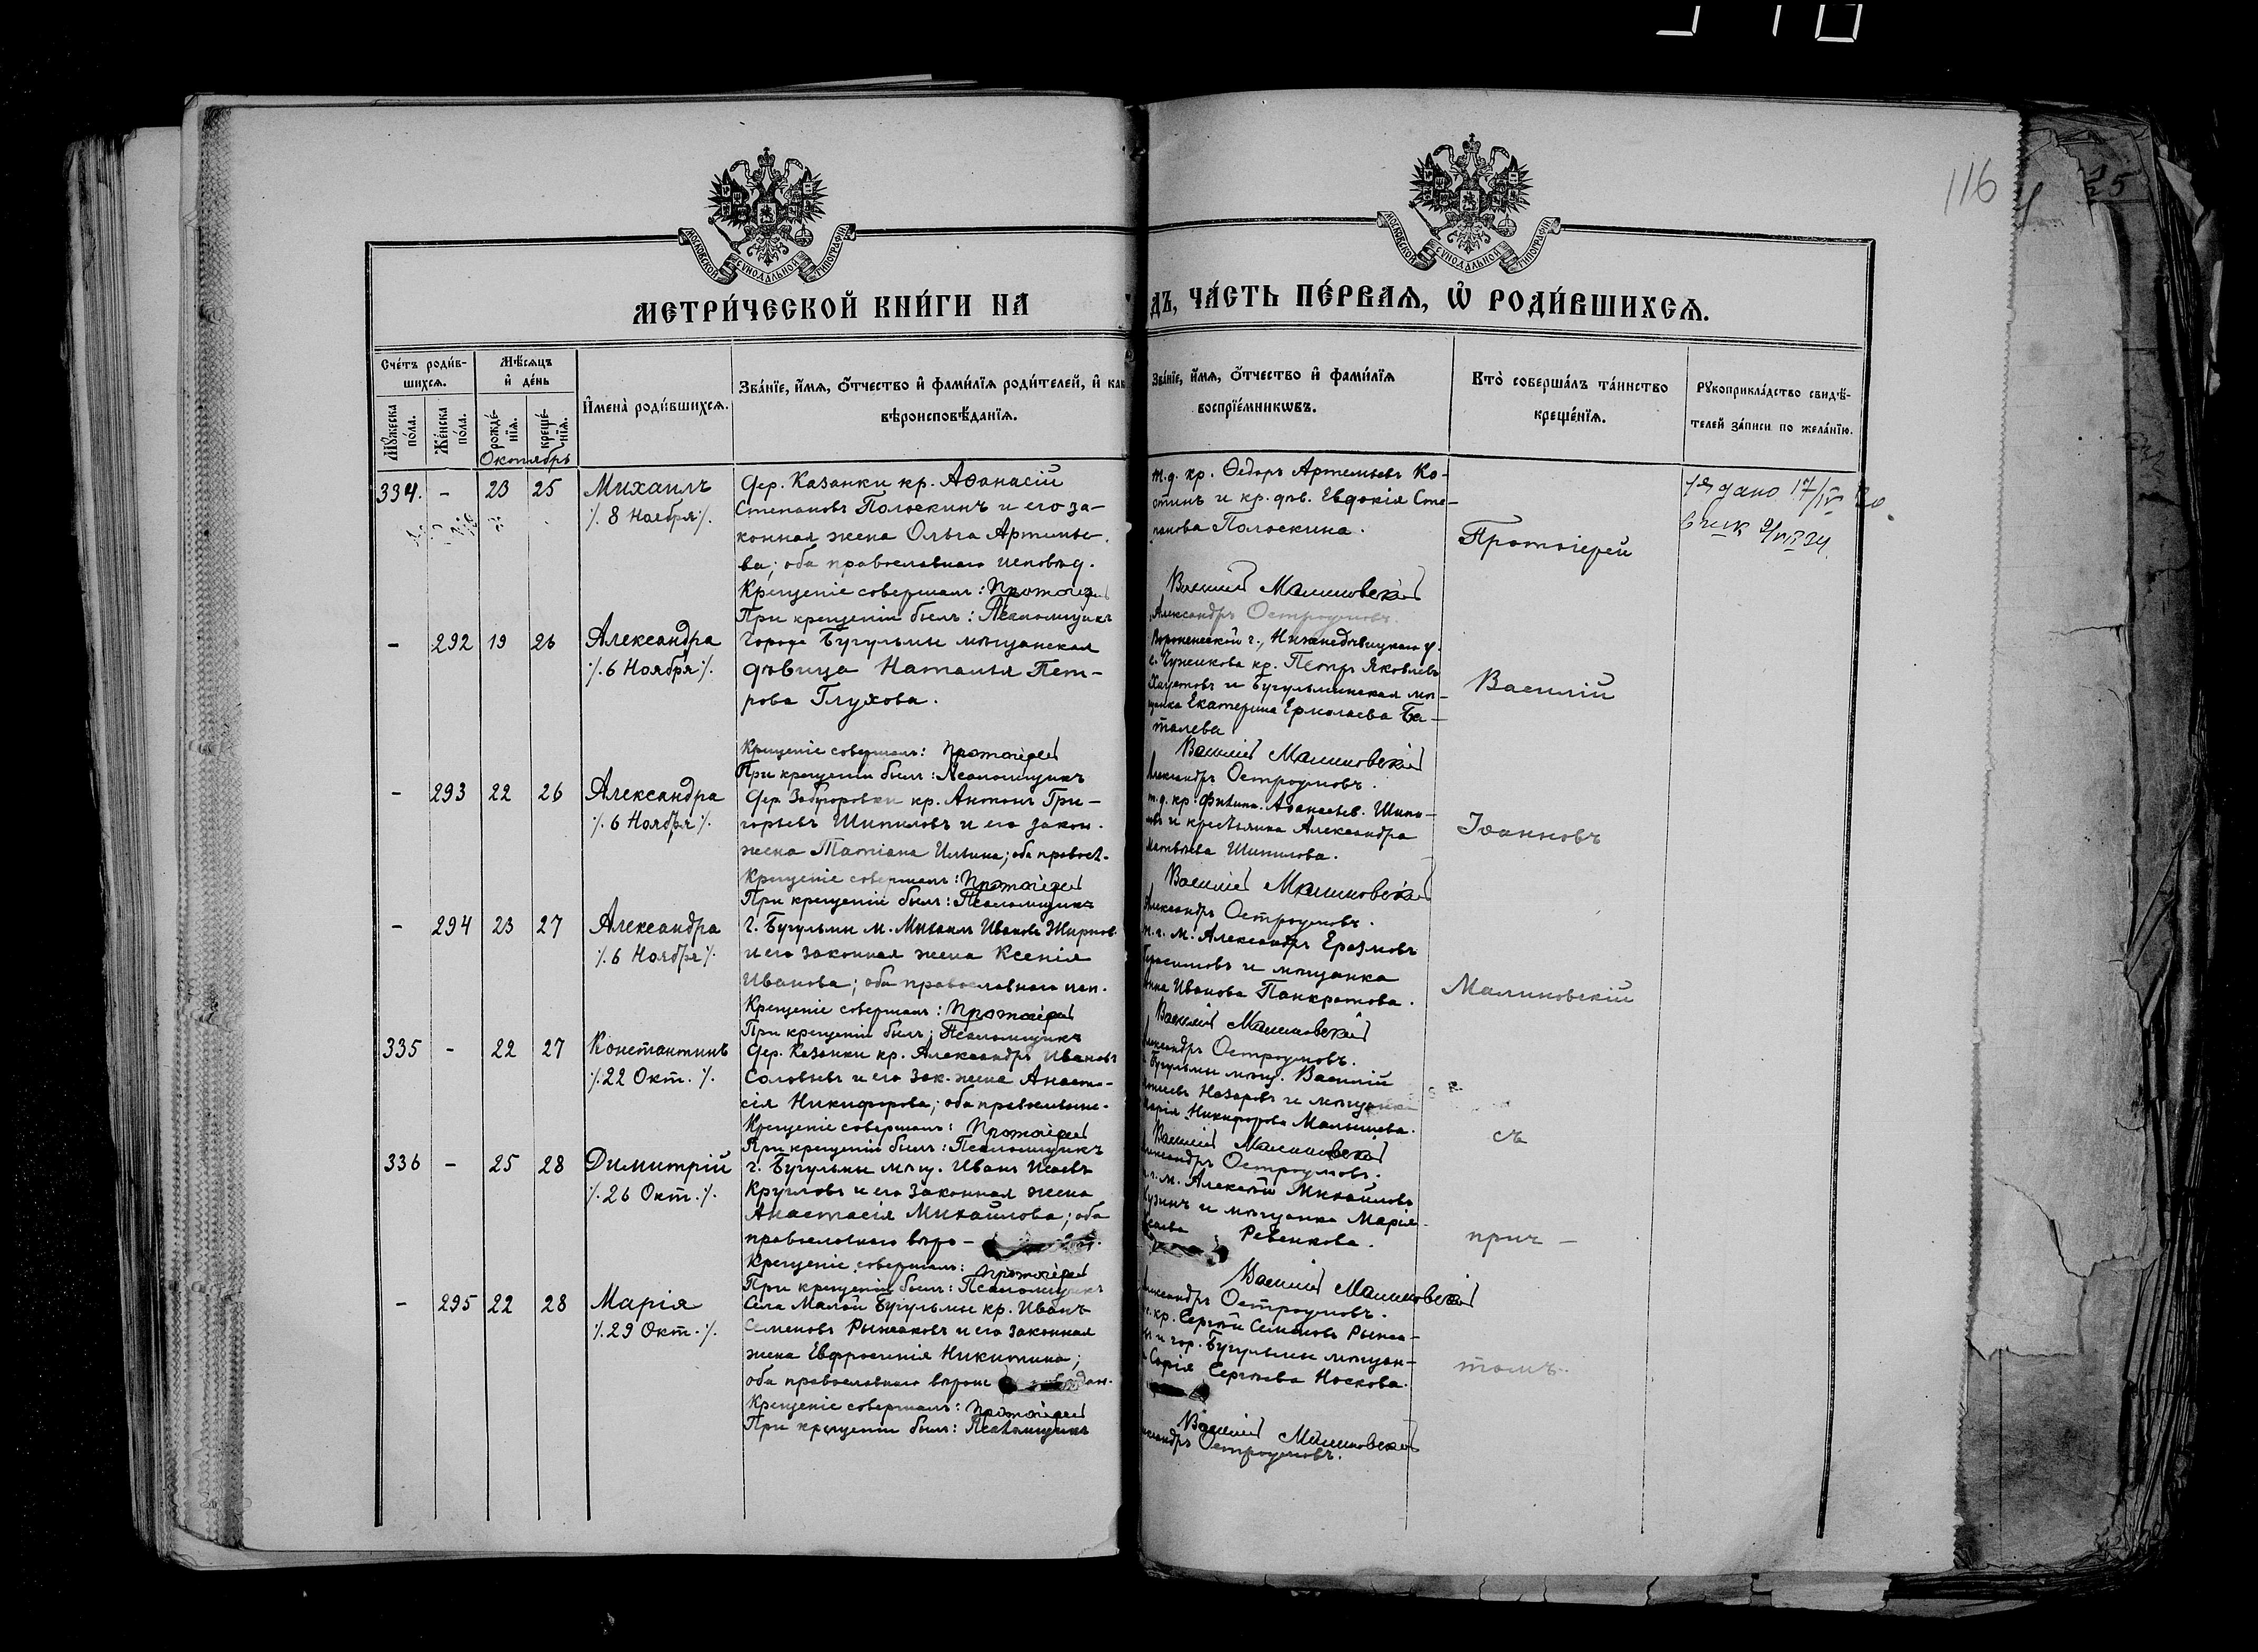 116
МОСКОВСКОЙ СѴНОДАЛЬНОЙ ТИПОГРАФІИ
МОСКОВСКОЙ СѴНОДАЛЬНОЙ ТИПОГРАФІИ
МЕТРИ́ЧЕСКОЙ КНИ́ГИ НА
ДЪ, ЧА́СТЬ ПЕ́РВАѦ, Ѡ҆ РОДИ́ВШИХСѦ.
Сче́тъ роди́в-
шихсѧ.
Мѣ́сѧцъ
и҆ де́нь
Мꙋ́жеска по́ла.
Же́нска по́ла.
рожде́-
нїѧ.
креще́-
нїѧ.
Октябрь
И҆мена̀ роди́вшихсѧ.
Зва́нїе, и҆́мѧ, ѻ҆́тчество и҆ фами́лїѧ роди́телей, и҆ как
вѣроисповѣ́данїѧ.
Зва́нїе, и҆́мѧ, ѻ҆́тчество и҆ фами́лїѧ
воспрїе́мникѡвъ.
Кто̀ соверша́лъ та́инство
креще́нїѧ.
Рꙋкоприкла́дство свидѣ́-
телей за́писи по жела́нїю.
334. - 23 25 Михаилъ
/. 8 Ноября /.
Дер. Казанки кр. Аѳанасій
Степановъ Полоскинъ и его за-
конная жена Ольга Артемье-
ва; оба православнаго исповѣд.
Крещеніе совершалъ: Протоіерей
При крещеніи былъ: Псаломщикъ
т.д. кр. Ѳедоръ Артемьевъ Ко-
стинъ и кр. дѣв. Евдокія Сте-
панова Полоскина.
Василій Малиновскій
Александръ Остроумовъ.
Протоіерей
- 292 19 26 Александра
/. 6 Ноября /.
Города Бугульмы мѣщанская
дѣвица Наталья Пет-
рова Глухова.
Крещеніе совершалъ: Протоіерей
При крещеніи былъ: Псаломщикъ
Воронежской г., Нижнедѣвицкаго у.
кр. Петръ Яковлевъ
и Бугульминская мѣ-
щанка Екатерина Ермолаева Ба-
талева
Василій Малиновскій
Александръ Остроумовъ.
Василій
- 293 22 26 Александра
/. 6 Ноября /.
Дер. Забугоровки кр. Антонъ Гри-
горьевъ Шипиловъ и его закон.
жена Татіана Ильина; оба правосл.
Крещеніе совершалъ: Протоіерей
При крещеніи былъ: Псаломщикъ
т.д. кр. Филип. Аѳанасьев. Шипи-
ловъ и крестьянка Александра
Матвѣева Шипилова.
Василій Малиновскій
Александръ Остроумовъ.
Іоанновъ
- 294 23 27 Александра
/. 6 Ноября /.
Г. Бугульмы м. Михаилъ Ивановъ Жирнов
и его законная жена Ксенія
Иванова; оба православнаго исп.
Крещеніе совершалъ: Протоіерей
При крещеніи былъ: Псаломщикъ
т.г. м. Александръ Еразмовъ
Герасимовъ и мѣщанка
Анна Иванова Панкратова.
Василій Малиновскій
Александръ Остроумовъ.
Малиновскій
335 - 22 27 Константинъ
/. 22 Окт. /.
Дер. Казанки кр. Александръ Ивановъ
Соловьевъ и его зак. жена Анаста-
сія Никифорова; оба православн.
Крещеніе совершалъ: Протоіерей
При крещеніи былъ: Псаломщикъ
г. Бугульмы мѣщ. Василій
Назаровъ и мѣщанка
Марія Никифорова Малышева.
Василій Малиновскій
Александръ Остроумовъ.
съ
336 - 25 28 Димитрій
/. 26 Окт. /.
г. Бугульмы мѣщ. Иванъ Исаевъ
Кругловъ и его законная жена
Анастасія Михайлова; оба
православнаго вѣро-
Крещеніе совершалъ: Протоіерей
При крещеніи былъ: Псаломщикъ
т.г. м. Алексѣй Михайловъ
и мѣщанка Марія
Исаева Ревенкова.
Василій Малиновскій
Александръ Остроумовъ.
прич-
- 295 22 28 Марія
/. 29 Окт. /.
Села Малой Бугульмы кр. Иванъ
Семеновъ Рынсаковъ и его законная
жена Евфросинія Никитина;
оба православнаго вѣроис
Крещеніе совершалъ: Протоіерей
При крещеніи былъ: Псаломщикъ
кр. Сергѣй Семеновъ Рынса-
и гор. Бугульмы мѣщан-
Софія Сергѣева Носкова.
Василій Малиновскій
Александръ Остроумовъ.
томъ.